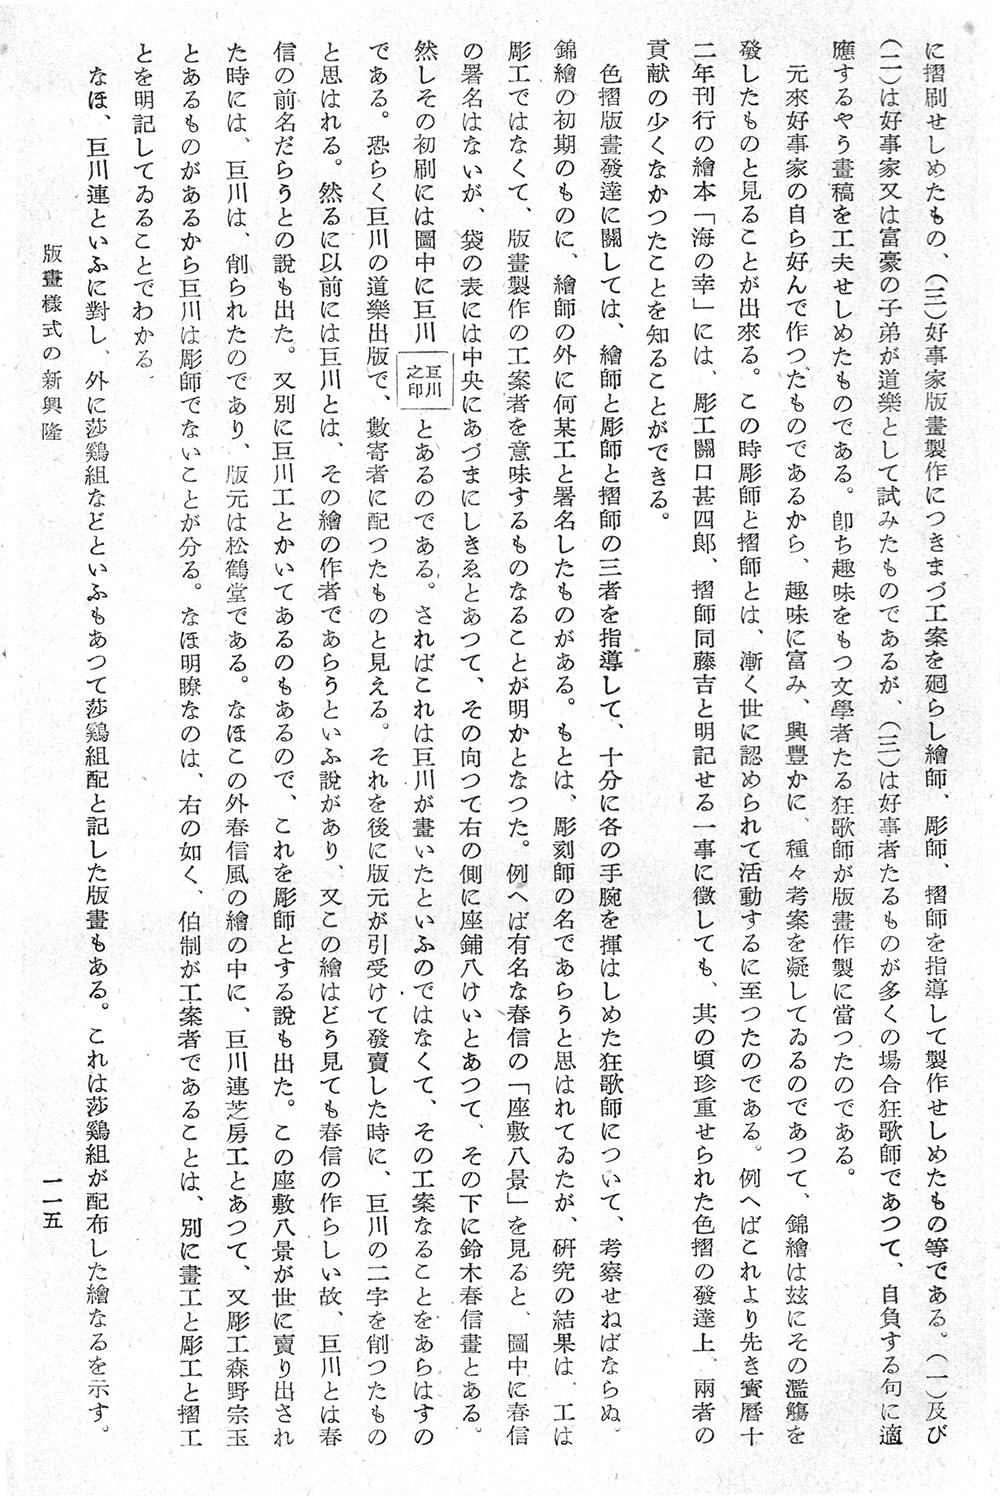 に摺刷せしめたもの、(三)好事家版畫製作につきまづ工案を廻らし繪師、彫師、摺師を指導して製作せしめたもの等である。(一)及び
(二)は好事家又は富豪の子弟が道樂として試みたものであるが、(三)は好事者たるものが多くの場合狂歌師であつて、自負する句に適
應するやう畫稿を工夫せしめたものである。卽ち趣味をもつ文學者たる狂歌師が版畫作製に當つたのである。
元來好事家の自ら好んで作つたものであるから、趣味に富み、興豊かに、種々考案を凝してゐるのであつて、錦繪は玆にその濫觴を
發したものと見ることが出來る。この時彫師と摺師とは、漸く世に認められて活動するに至つたのである。例へばこれより先き寳曆十
二年刊行の繪本「海の幸」には、彫工關口甚四郞、摺師同藤吉と明記せる一事に徵しても、其の頃珍重せられた色摺の發達上、兩者の
貢献の少くなかつたことを知ることができる。
色摺版畫發達に關しては、繪師と彫師と摺師の三者を指導して、十分に各の手腕を揮はしめた狂歌師について、考察せねばならぬ。
錦繪の初期のものに、繪師の外に何某工と署名したものがある。もとは、彫刻師の名であらうと思はれてゐたが、硏究の結果は、工は
彫工ではなくて、版畫製作の工案者を意味するものなることが明かとなつた。例へば有名な春信の「座敷八景」を見ると、圖中に春信
の署名はないが、袋の表には中央にあづまにしきゑとあつて、その向つて右の側に座鋪八けいとあつて、その下に鈴木春信畫とある。
然しその初刷には圖中に巨川 巨川之印 とあるのである。さればこれは巨川が畫いたといふのではなくて、その工案なることをあらはすの
である。恐らく巨川の道樂出版で、數寄者に配つたものと見える。それを後に版元が引受けて發賣した時に、巨川の二字を削つたもの
と思はれる。然るに以前には巨川とは、その繪の作者であらうといふ說があり、又この繪はどう見ても春信の作らしい故、巨川とは春
信の前名だらうとの說も出た。又別に巨川工とかいてあるのもあるので、これを彫師とする說も出た。この座敷八景が世に賣り出され
た時には、巨川は、削られたのであり、版元は松鶴堂である。なほこの外春信風の繪の中に、巨川連芝房工とあつて、又彫工森野宗玉
とあるものがあるから巨川は彫師でないことが分る。なほ明瞭なのは、右の如く、伯制が工案者であることは、別に畫工と彫工と摺工
とを明記してゐることでわかる。
なほ、巨川連といふに對し、外に莎鷄組などといふもあつて莎鷄組配と記した版畫もある。これは莎鷄組が配布した繪なるを示す。
版畫樣式の新興隆
一一五